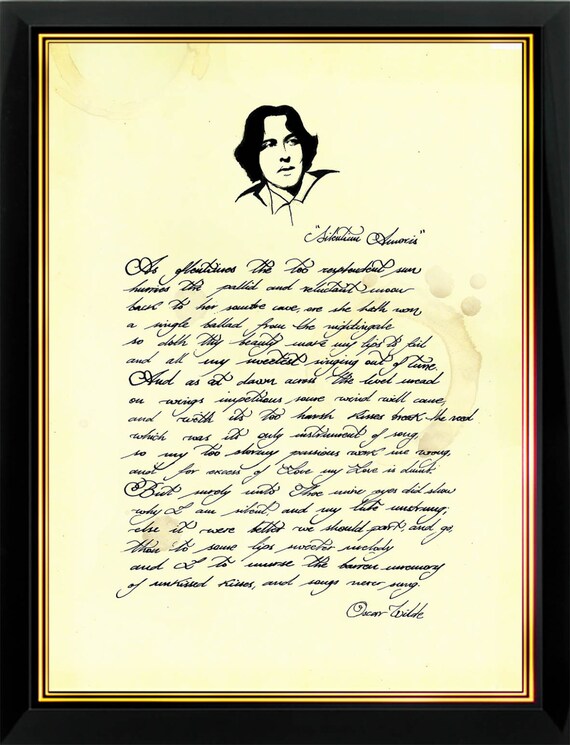 "Silentium Amoris"
As oftentimes the too resplendent sun
hurries the pallid and reluctant moon
back to her sombre cave, ere she hath won
a single ballad from the nightingale
so doth thy beauty make my lips to fail
and all my sweetest singing out of tune.
And as at dawn across the level mead
on wings impetuous some wind will come,
and with its too harsh kisses break the reed
which was its only instrument of song,
so my too stormy passions work me wrong,
and for excess of Love my Love is dumb.
But surely unto Thee mine eyes did show
why I am silent, and my lute unstrung;
else it were better we should part, and go,
thou to some lips sweeter melody
and I to nurse the barren memory
of unkissed kisses, and songs never sung.
Oscar Wilde